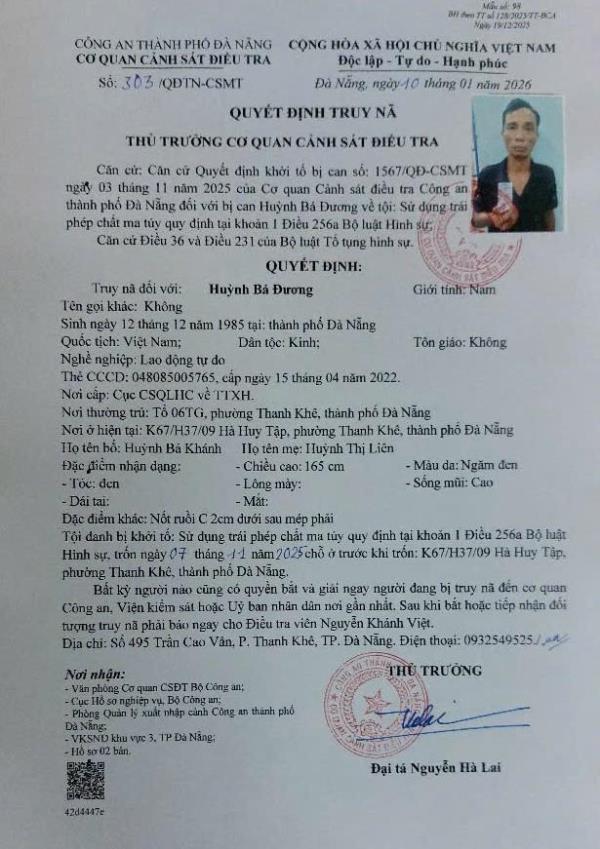 Mẫu số: 98
BH theo TT số 128/2025/TT-BCA
Ngày 19/12/2025
CÔNG AN THÀNH PHỐ ĐÀ NẴNG
CƠ QUAN CẢNH SÁT ĐIỀU TRA
Số: 303/QĐTN-CSMT
CỘNG HÒA XÃ HỘI CHỦ NGHĨA VIỆT NAM
Độc lập - Tự do - Hạnh phúc
Đà Nẵng, ngày 10 tháng 01 năm 2026
QUYẾT ĐỊNH TRUY NÃ
THỦ TRƯỞNG CƠ QUAN CẢNH SÁT ĐIỀU TRA
Căn cứ: Căn cứ Quyết định khởi tố bị can số: 1567/QĐ-CSMT
ngày 03 tháng 11 năm 2025 của Cơ quan Cảnh sát điều tra Công an
thành phố Đà Nẵng đối với bị can Huỳnh Bá Đương về tội: Sử dụng trái
phép chất ma túy quy định tại khoản 1 Điều 256a Bộ luật Hình sự;
Căn cứ Điều 36 và Điều 231 của Bộ luật Tố tụng hình sự.
QUYẾT ĐỊNH:
Truy nã đối với: Huỳnh Bá Đương Giới tính: Nam
Tên gọi khác: Không
Sinh ngày 12 tháng 12 năm 1985 tại: thành phố Đà Nẵng
Quốc tịch: Việt Nam; Dân tộc: Kinh; Tôn giáo: Không
Nghề nghiệp: Lao động tự do
Thẻ CCCD: 048085005765, cấp ngày 15 tháng 04 năm 2022.
Nơi cấp: Cục CSQLHC về TTXH.
Nơi thường trú: Tổ 06TG, phường Thanh Khê, thành phố Đà Nẵng
Nơi ở hiện tại: K67/H37/09 Hà Huy Tập, phường Thanh Khê, thành phố Đà Nẵng
Họ tên bố: Huỳnh Bá Khánh Họ tên mẹ: Huỳnh Thị Liên
Đặc điểm nhận dạng: - Chiều cao: 165 cm - Màu da: Ngăm đen
- Tóc: đen - Lông mày: - Sống mũi: Cao
- Dái tai: - Mắt:
Đặc điểm khác: Nốt ruồi C 2cm dưới sau mép phải
Tội danh bị khởi tố: Sử dụng trái phép chất ma túy quy định tại khoản 1 Điều 256a Bộ luật
Hình sự, trốn ngày 07 tháng 11 năm 2025 chỗ ở trước khi trốn: K67/H37/09 Hà Huy Tập,
phường Thanh Khê, thành phố Đà Nẵng.
Bất kỳ người nào cũng có quyền bắt và giải ngay người đang bị truy nã đến cơ quan
Công an, Viện kiểm sát hoặc Uỷ ban nhân dân nơi gần nhất. Sau khi bắt hoặc tiếp nhận đối
tượng truy nã phải báo ngay cho Điều tra viên Nguyễn Khánh Việt.
Địa chỉ: Số 495 Trần Cao Vân, P. Thanh Khê, TP. Đà Nẵng. Điện thoại: 0932549525./.
Nơi nhận:
- Văn phòng Cơ quan CSĐT Bộ Công an;
- Cục Hồ sơ nghiệp vụ, Bộ Công an;
- Phòng Quản lý xuất nhập cảnh Công an thành phố
Đà Nẵng;
- VKSND khu vực 3, TP Đà Nẵng;
- Hồ sơ 02 bản.
42d4447e
THỦ TRƯỞNG
Đại tá Nguyễn Hà Lai